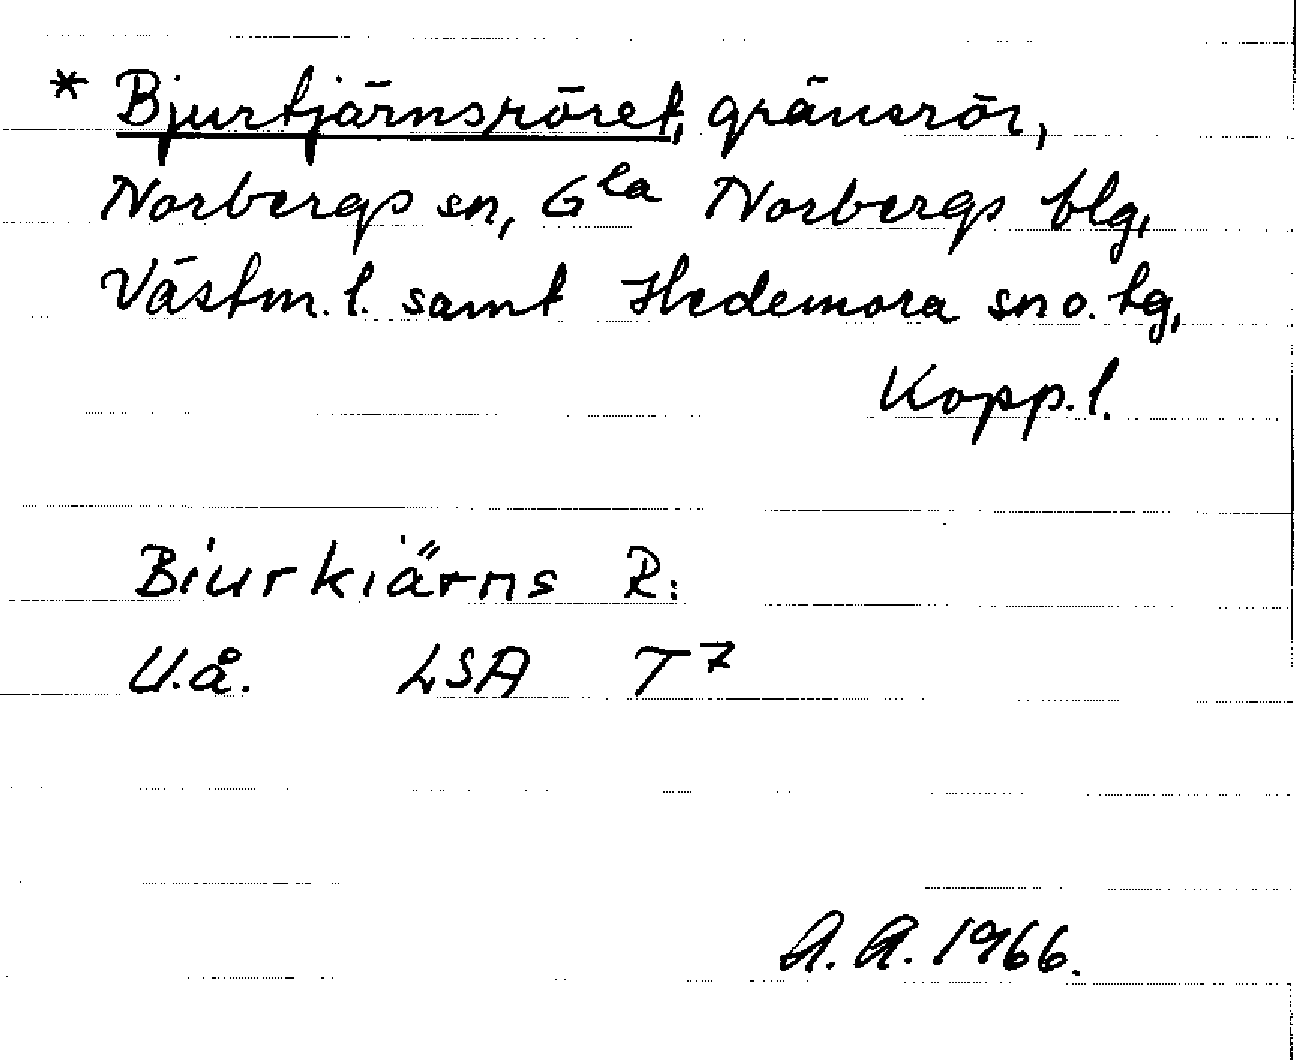 * Bjurtjärnsröret, gränsrör,
Norbergs sn, Gla Norbergs blg,
Västm. l. samt Hedemora sn o. tg,
Kopp. l.
Biurkiärns R:
U.å. LSA T7
A. A. 1966.